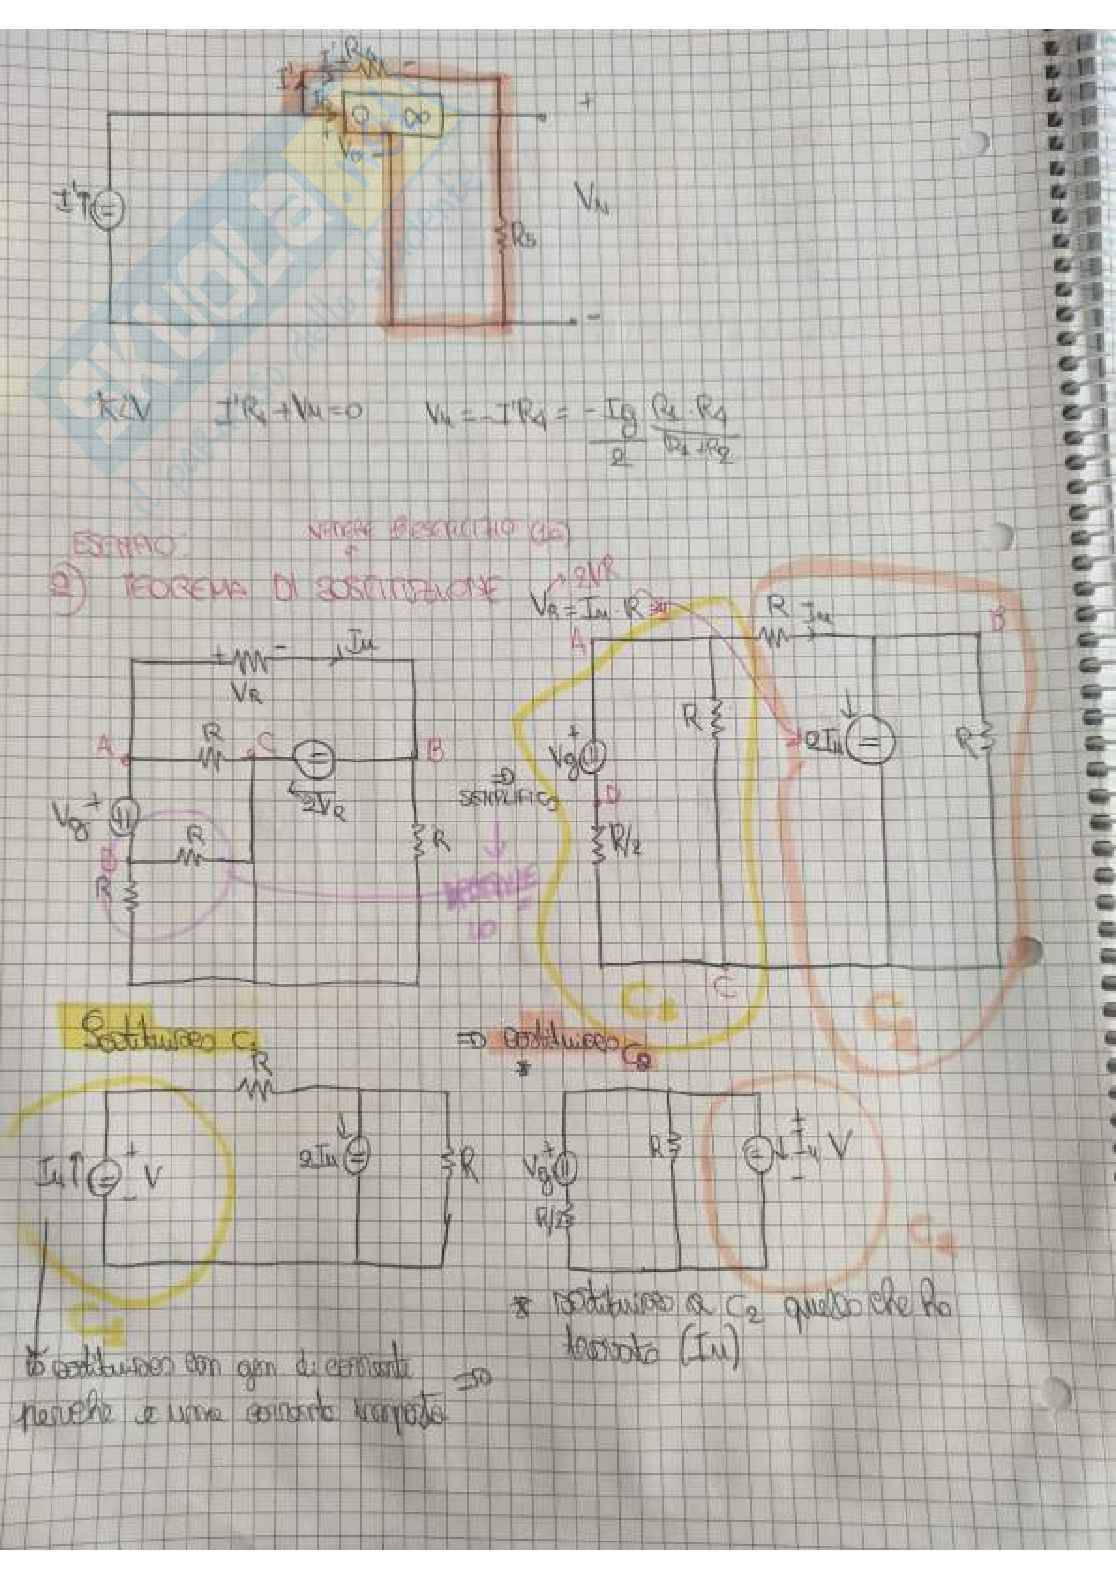 I' R4 -
I'
+
I'↑
Vd
0 ∞
VN
R5
-
SKUOLa
KLV I'R4 + VN = 0 VN = -I'R4 = -Ig/2 R1·R4/R1+R2
ESEMPIO
2) TEOREMA DI SOSTITUZIONE
2VR
VR = Iu · R
+ - Iu
VR
A R C B
2VR
Vg +
R
R
R
=D
SEMPLIFICO
A R Iu B
R
Vg +
2Iu
R
D
R/2
C
C1
C2
Sostituisco C1
=D sostituisco C2
*
R
Iu↑ + V -
2Iu
R
C1
Vg +
R/2
R
+ Iu V -
C2
* sostituisco a C2 quello che ho
trovato (Iu)
sostituisco con gen di corrente =D
perché è una corrente imposta